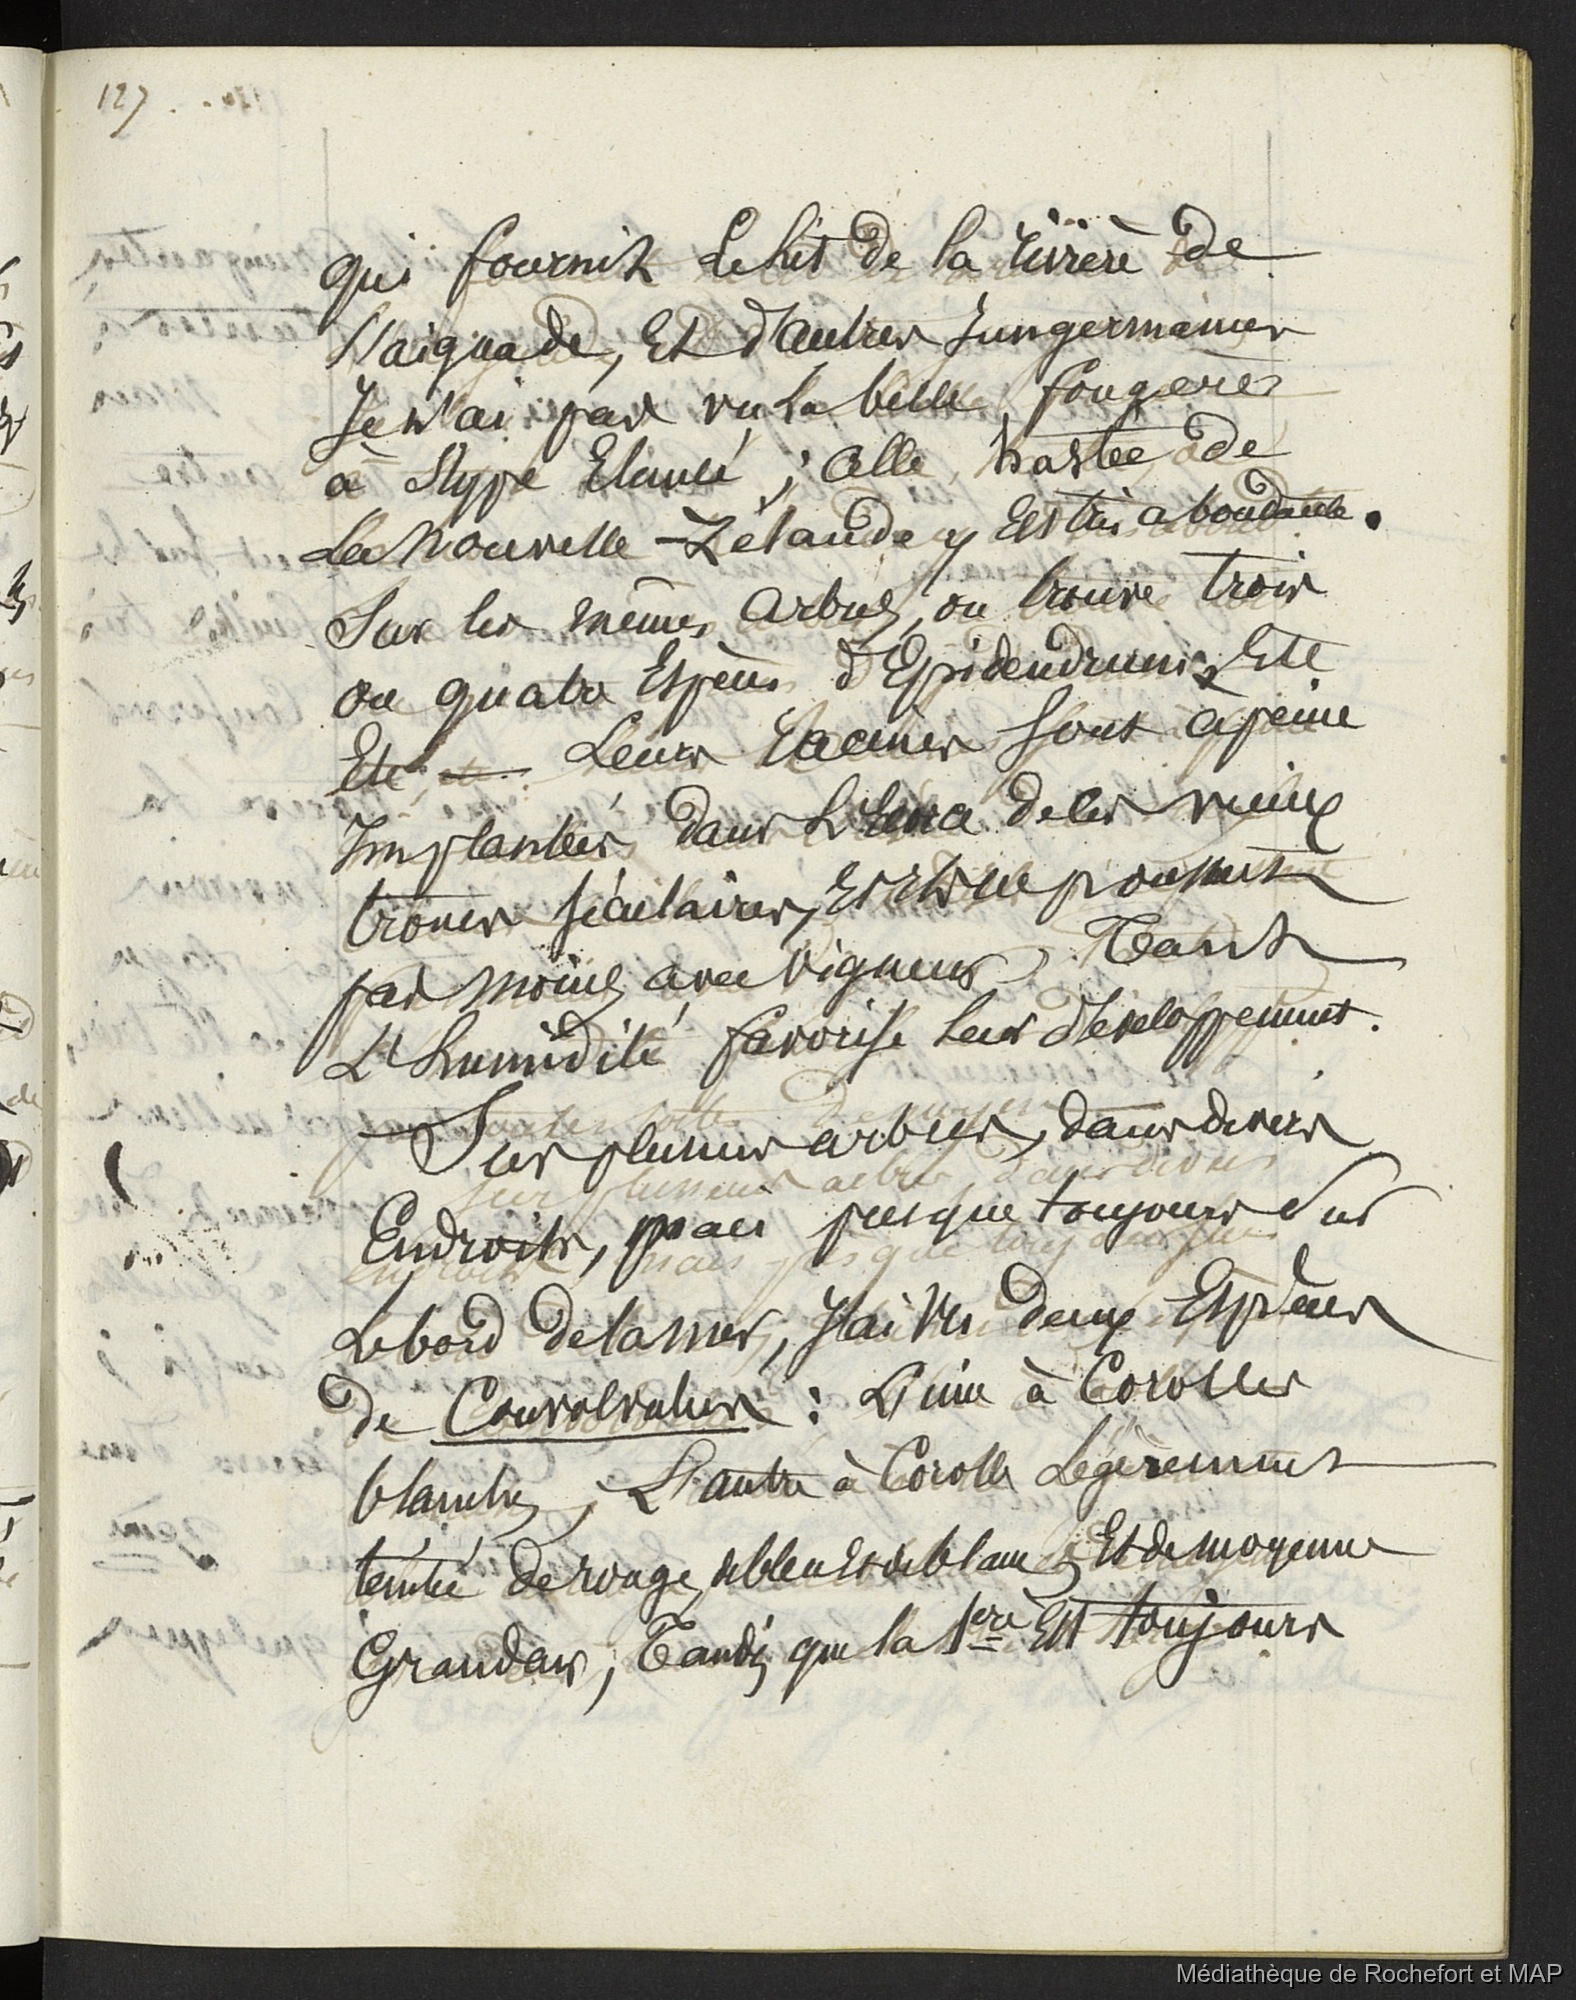 127.
qui fournit Le Lit de la rivière de
l'aiguade, Et d'autres Jungermaines
Je n'ai pas vu la belle fougères
à Stype Elancé ; Celle hastée de
La Nouvelle-Zélande y Est très abondante.
Sur les mêmes arbres, on trouve trois
ou quatre Espèces d'Epidendrums, Etc
Etc, Leurs Racines sont apeine
Implantées dans de ces vieux
troncs séculaires, Et Elles ne poussent
pas moins avec Vigueur, Tant
L'humidité favorise leur développement.
Sur plusieurs arbres, dans divers
Endroits, mais presque toujours Sur
Le bord de la mer, J'ai Vu deux Espèces
de Convolvulus : L'une à Corolles
blanches, L'autre à Corolle Légèrement
teintée de rouge, de bleu Et de blanc, Et de moyenne
Grandeur, Tandis que la 1ère Est toujours
Médiathèque de Rochefort et MAP